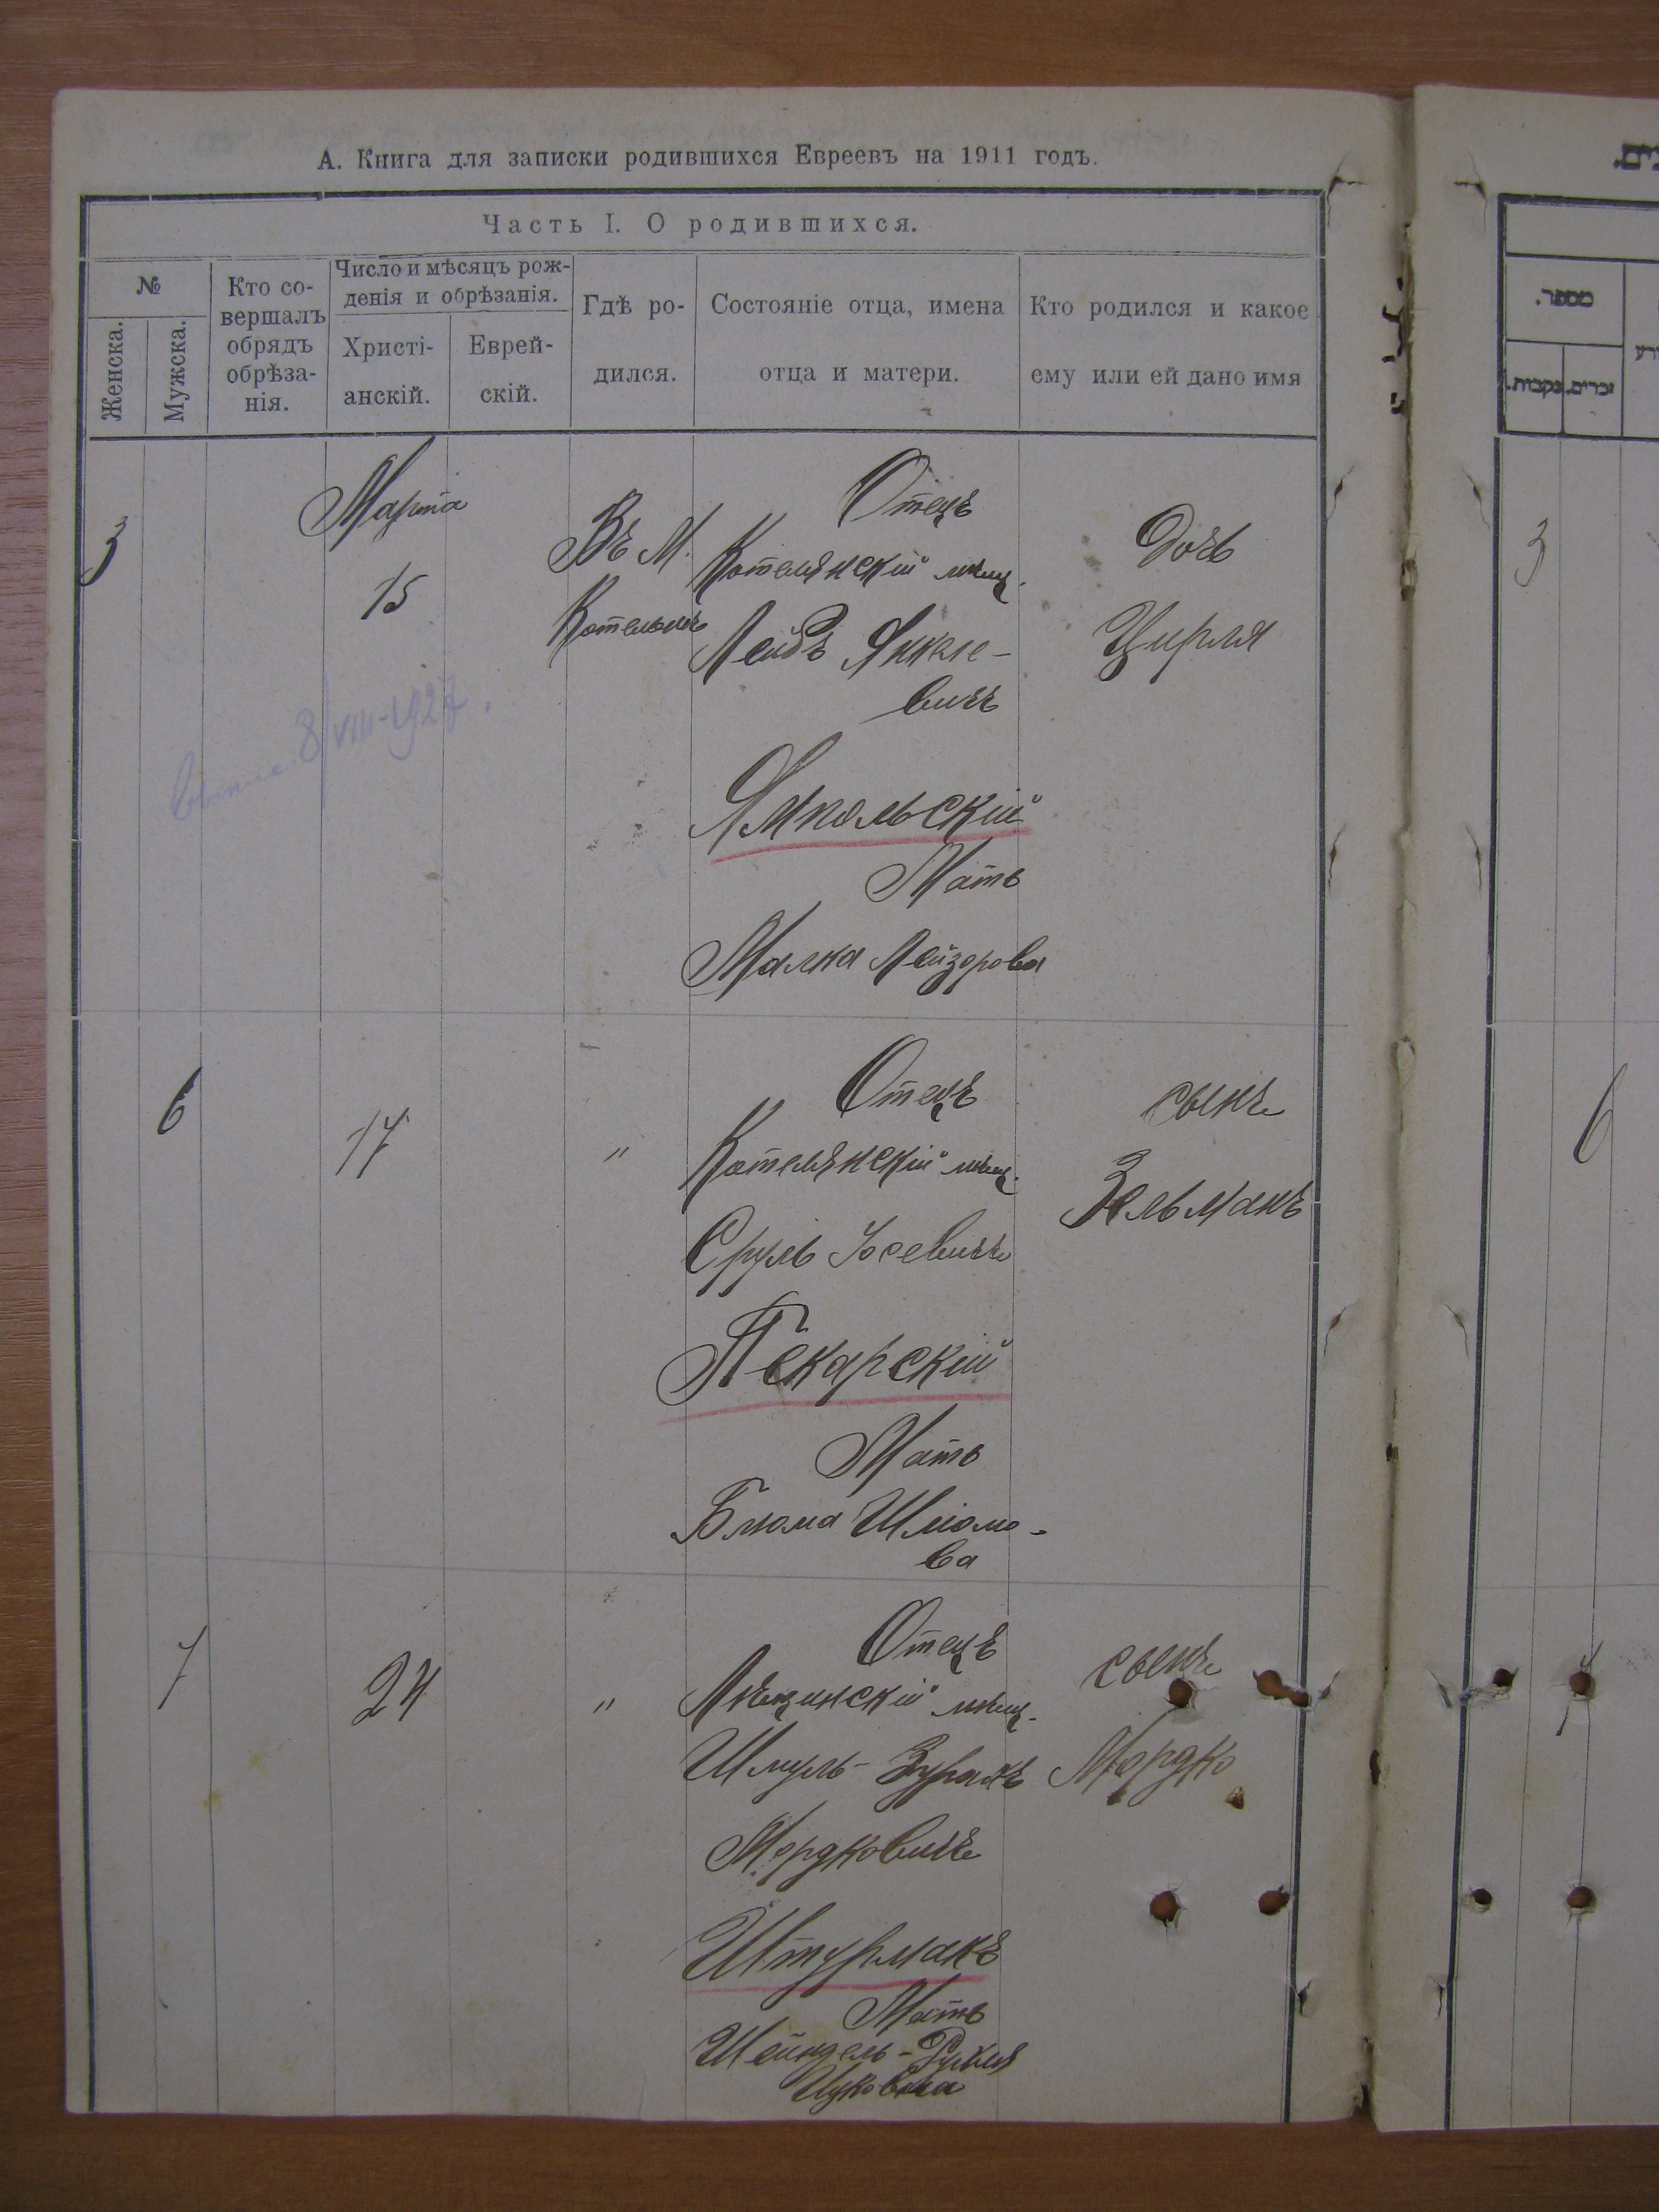 А. Книга для записки родившихся Евреевъ на 1911 годъ.
Часть I. О родившихся.
№
Женска.
Мужска.
Кто совершалъ
обрядъ
обрѣза-
нія.
Число и мѣсяцъ рож-
денія и обрѣзанія.
Христі-
анскій.
Еврей-
скій.
Гдѣ ро-
дился.
Состояніе отца, имена
отца и матери.
Кто родился и какое
ему или ей дано имя
מספר.
זכרים.
נקבות.
3
Марта
15
Въ М.
Котельнѣ
Отецъ
Котелянскій мѣщ.
Лейбъ Янкле-
вичъ
Ямпольскій
Мать
Малка Лейзерова
Дочь
Цирля
8/VIII-1927.
3
6
17
"
Отецъ
Котелянскій мѣщ.
Сруль Іосевичъ
Пекарскій
Мать
Блюма Шліомо-
ва
сынъ
Зельманъ
6
7
24
"
Отецъ
мѣщ.
Шмуль-
Мордковичъ
Штурманъ
Мать
Шейндель-
Ицковна
сынъ
Мордко
7